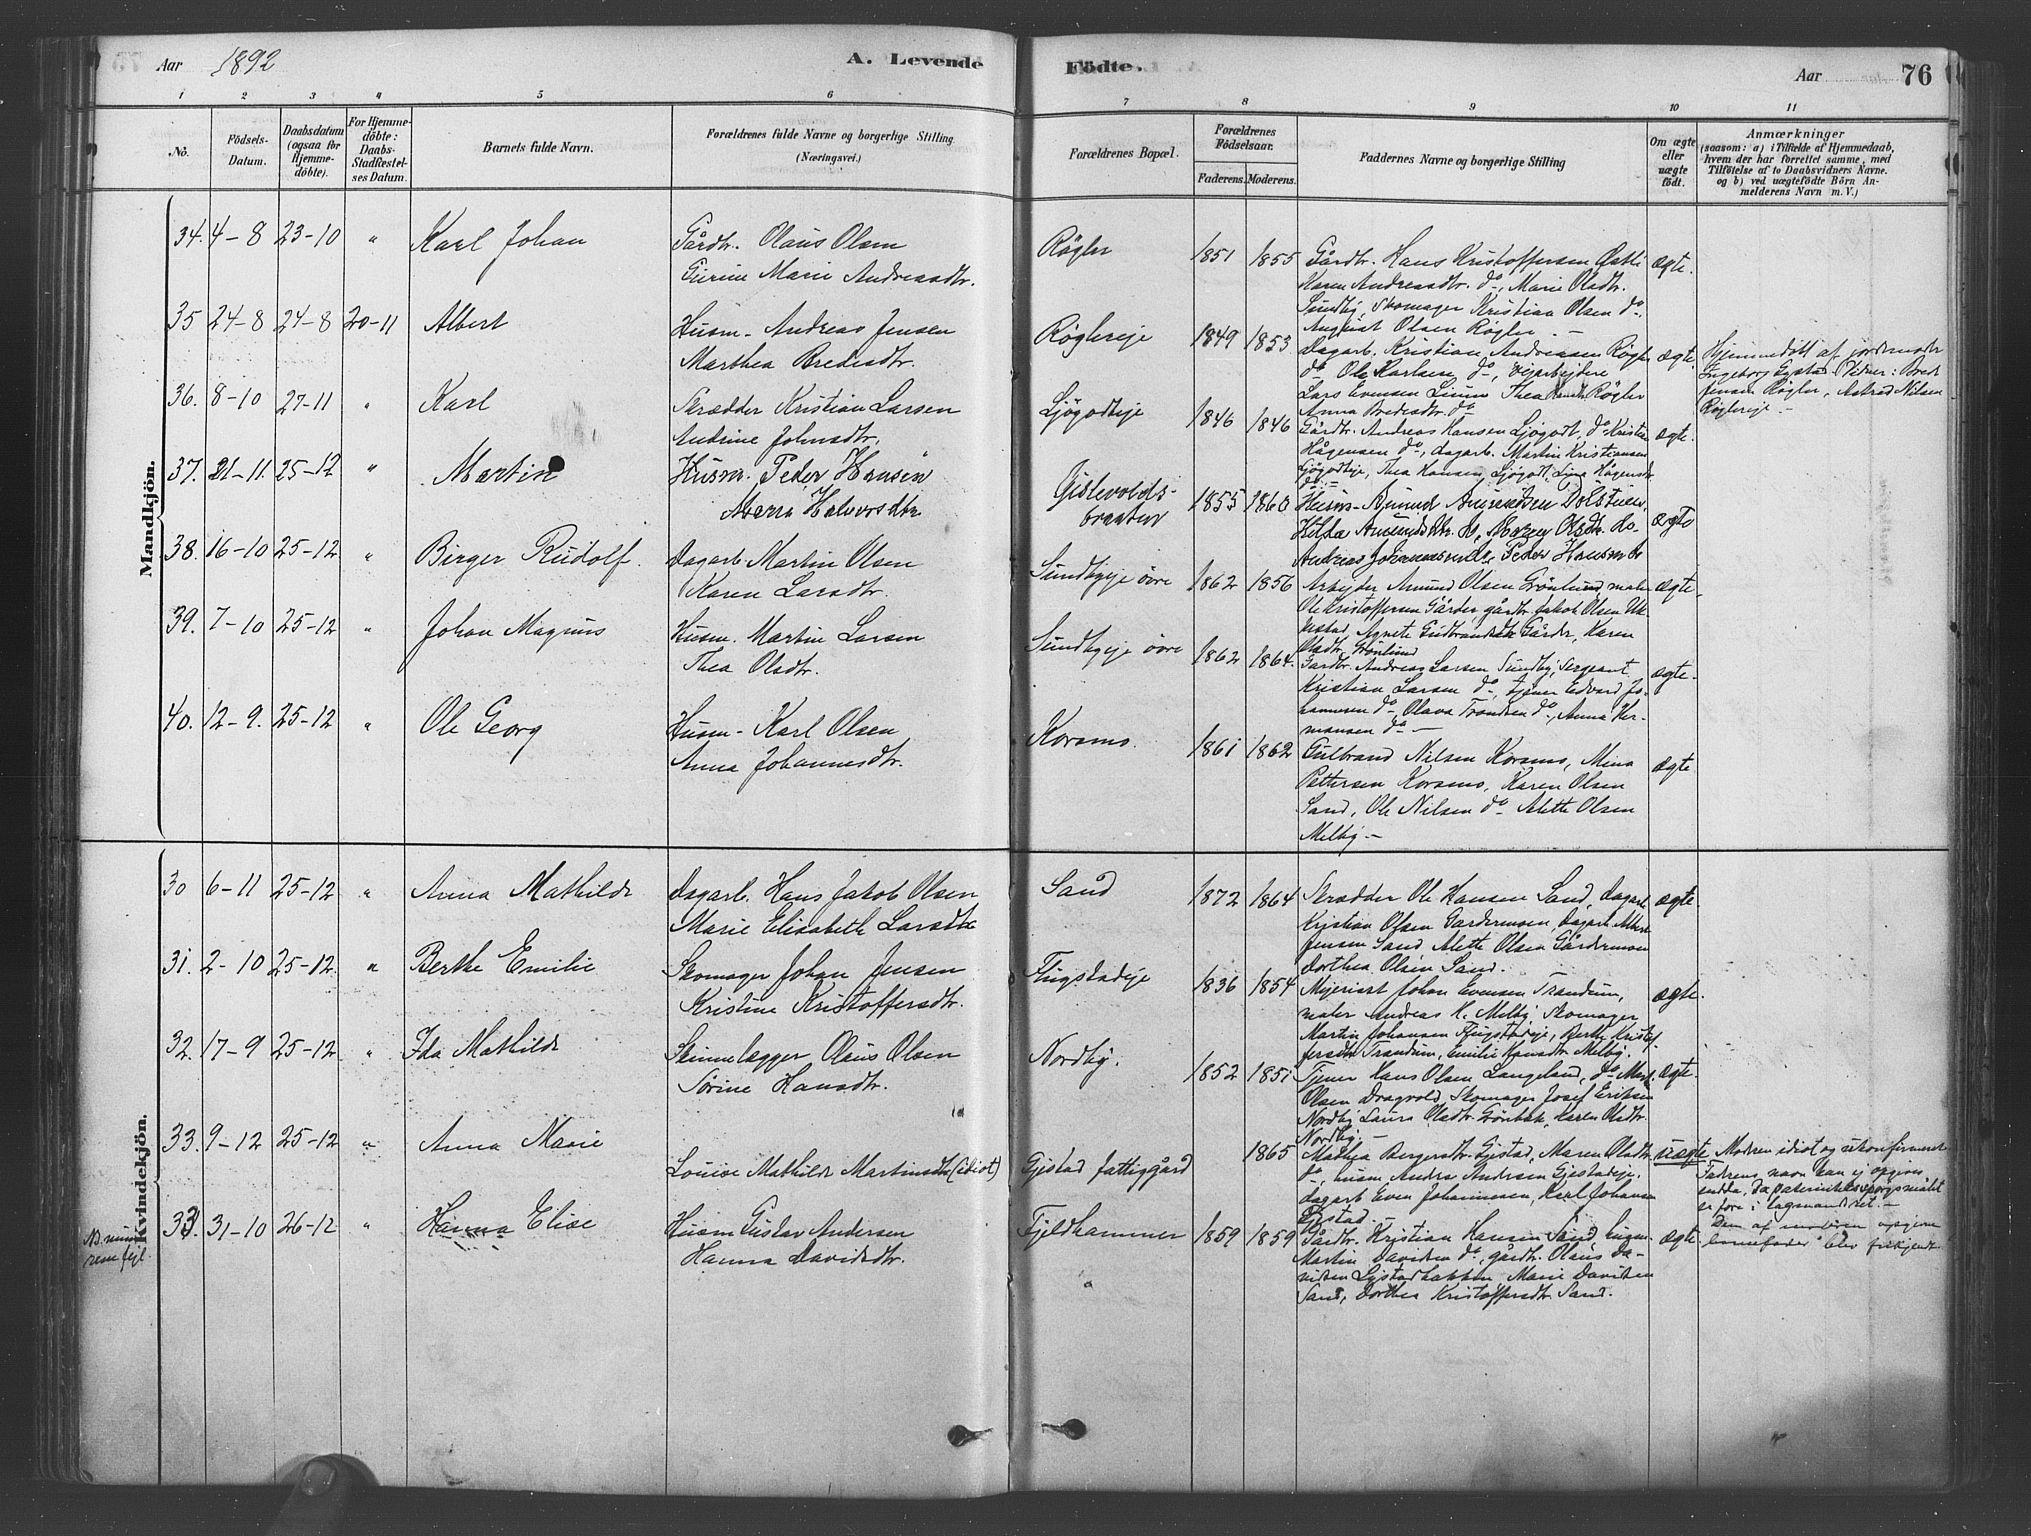 Aar 1892
A. Levende
Födte.
Aar
76
1 2 3 4 5 6 7 8 9 10 11
No.
Födsels-
Datum.
Daabsdatum
(ogsaa for
Hjemme-
döbte).
For Hjemme-
döbte:
Daabs-
Stadfæstel-
ses Datum.
Barnets fulde Navn.
Forældrenes fulde Navne og borgerlige Stilling
(Næringsvei.)
Forældrenes Bopæl.
Forældrenes
Födselsaar.
Faderens. Moderens.
Faddernes Navne og borgerlige Stilling
Om ægte
eller
uægte
födt.
Anmærkninger
(saasom: a) i Tilfælde af Hjemmedaab,
hvem der har forrettet samme, med
Tilföielse af to Daabsvidners Navne.
og b) ved uægtefödte Börn An-
melderens Navn m. V.)
Mandkjön.
34. 4-8 23-10 " Karl Johan
Gårdbr. Olaus Olsen
Marie Andreasdtr.
Røgler 1851 1855
Gårdbr. Hans Kristoffersen
Karen Andreasdtr. do, Marie Olsdtr.
Sundby, Skomager Kristian Olsen do,
August Olsen Røgler. -
ægte.
35 24-8 24-8 20-11 Albert
Husm. Andreas Jensen
Marthea Bredesdtr.
Røglereje 1849 1853
Dagarb. Kristian Andreassen Røgler
do Ole Karlsen do, vejarbejdere
Lars Evensen Thea Røgler
Anna Bredesdtr. do
ægte.
Hjemmedøbt af jordemoder
Ingeborg Gystad Vidner: Brede
Jensen Røgler, Astrid Nilsen
Røglereje. -
36. 8-10 27-11 " Karl
Skrædder Kristian Larsen
Andrine Johnsdtr.
Ljøgodteje 1846 1846
Gårdbr. Andreas Hansen Ljøgodt, do Kristian
Hågensen do, dagarb. Martin Kristiansen
Ljøgodteje, Thea Hansen Ljøgodt, Lina Hågensdtr
do. -
ægte.
37. 21-11. 25-12 " Martin
Husm. Peder Hansen
Maren Halvorsdtr.
Gislevolds-
braaten 1855 1860
Husm. Amund Amundsen
Hilda Amundsdtr. do, Olsdtr. do
Andreas Peder Hansen do
ægte
38. 16-10 25-12 " Birger Rudolf.
Dagarb. Martin Olsen
Karen Larsdtr.
Sundbyeje øvre 1862 1856
Arbejder Amund Olsen Grönlund, maler
Ole Kristoffersen Gårder gårdbr. Jakob Olsen Uk-
kestad, Agnete Gulbrandsdtr Gårder, Karen
Olsdtr. Grönlund
ægte.
39. 7-10 25-12 " Johan Magnus
Husm. Martin Larsen
Thea Olsdtr.
Sundbyeje øvre 1862 1864.
Gårdbr. Andreas Larsen Sundby, Sergeant
Kristian Larsen do, tjener Edvard Jo-
hannesen do, Olava Trondsen do, Anna Her-
mansen do -
ægte.
40. 12-9. 25-12 " Ole Georg
Husm. Karl Olsen
Anna Johannesdtr.
Korsmo. 1861 1862
Gulbrand Nilsen Korsmo, Mina
Pettersen Korsmo, Karen Olsen
Sand, Ole Nilsen do Alette Olsen
Melby -
ægte
Kvindekjön.
30 6-11 25-12 " Anna Mathilde
Dagarb. Hans Jakob Olsen
Marie Elisabeth Larsdtr
Sand 1872 1864
Skrædder Ole Hansen Sand, dagarb.
Kristian Olsen Gardermoen, dagarb. Albert
Jensen Sand Alette Olsen Gårdermoen
Dorthea Olsen Sand.
ægte.
31. 2-10 25-12. " Berthe Emilie
Skomager Johan Jensen
Kristine Kristoffersdtr.
Flugstadeje 1836 1854
Mejerist Johan Evensen Trandum,
maler Andreas H. Melby Skomager
Martin Johansen Flugstadeje, Berthe Kristof-
fersdtr Trandum, Emilie Hansdtr. Melby.
ægte.
32. 17-9 25-12 " Ida Mathilde
Steinlægger Olaus Olsen
Sørine Hansdtr.
Nordby. 1852 1851
Tjener Hans Olsen Langeland, do Mart.
Olsen Dragvold, Skomager Josef Eriksen
Nordby Laura Olsdtr. Grönbæk, Karen Olsdtr.
Nordby -
ægte.
33. 9-12 25-12 " Anna Marie
Louise Mathilde Martinsdtr (idiot)
Gjestad fattiggård 1865
Mathea Bergersdtr. Gjestad, Maren Olsdtr
do, husm. Andreas Andersen Gjestadeje.
dagarb. Even Johannesen, Karl Johansen
Gjestad. -
uægte
Modren idiot og ukonfirmeret
Fadrens navn kan ej opgives
endda, da paternitetsspørgsmålet
er fore i lagmandsret. -
Den af moderen opgivne
barnefader blev frikjendt.
33. 31-10 26-12 " Hanna Elise
Husm Gustav Andersen
Hanna Davidsdtr.
Fjeldhammer 1859 1859
"
Gårdbr. Kristian Hansen Sand, husm.
Martin Davidsen do, gårdbr. Olaus Da-
vidsen Marie Davidsen
Sand, Dorthea Kristoffersdtr. Sand.
ægte
NB. num-
rene fejl.